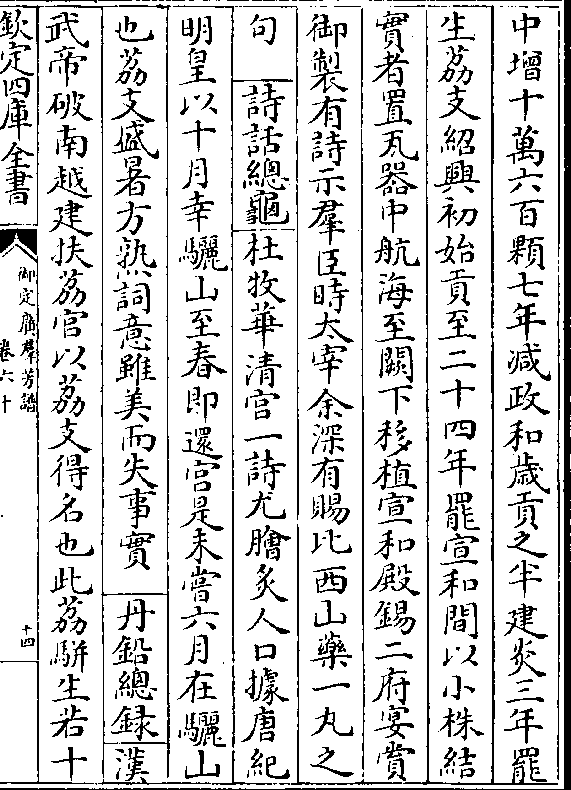 中增十萬六百顆七年減政和歳貢之半建炎三年罷
生荔支紹興初始貢至二十四年罷宣和間以小株結
實者置瓦器中航海至闕下移植宣和殿錫二府宴賞
御製有詩示羣臣時太宰余深有賜比西山藥一丸之
句 詩話總龜 杜牧華清宫一詩尤膾炙人口據唐紀
明皇以十月幸驪山至春即還宫是未嘗六月在驪山
也荔支盛暑方熟詞意雖美而失事實 丹鉛總録 漢
武帝破南越建扶荔宫以荔支得名也此荔駢生若十
欽定四庫全書
御定廣羣芳譜
卷六十
十四